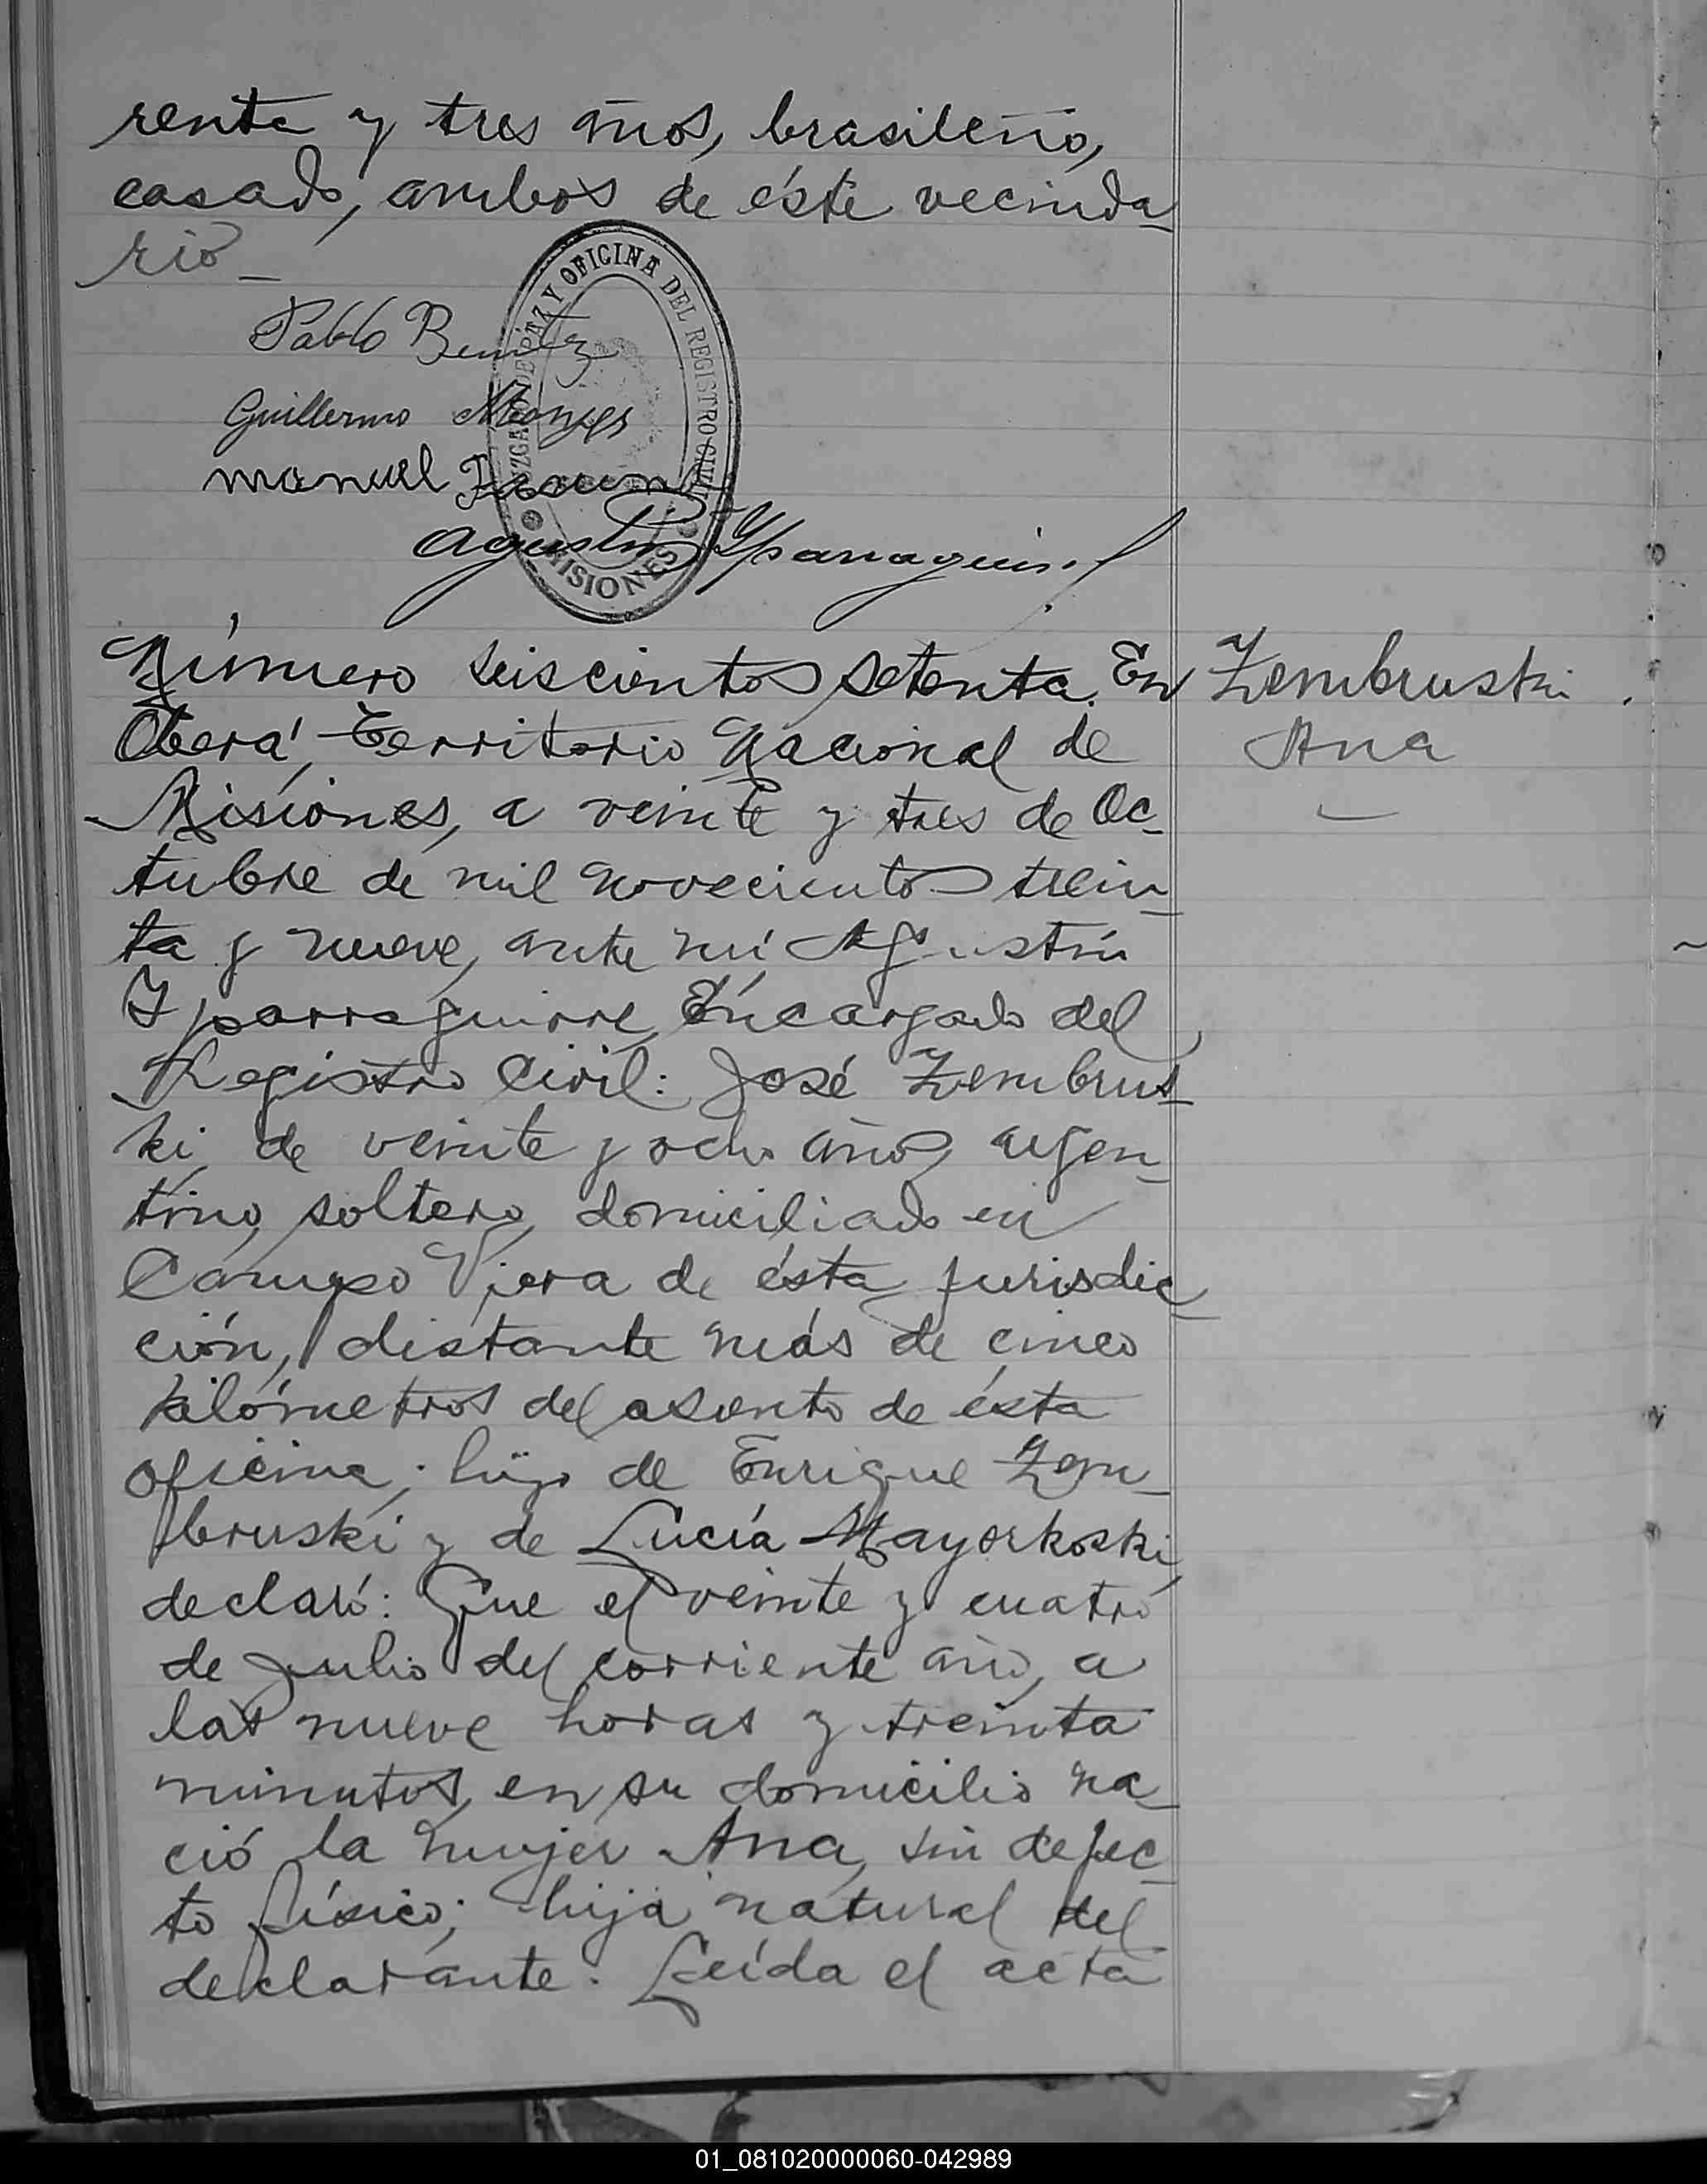 renta y tres años, brasileño,
casado, ambos de éste vecinda-
rio_
Pablo Benitez
Guillermo
manuel
Agustin Yparraguirre
JUZGADO DE PAZ Y OFICINA DEL REGISTRO CIVIL
MISIONES
Número seiscientos setenta. En
Oberá, Territorio Nacional de
Misiones, a veinte y tres de Oc-
tubre de mil novecientos trein-
ta y nueve, ante mí Agustín
Yparraguirre, Encargado del
Registro Civil: José Zembrus-
ki, de veinte y ocho años, argen-
tino, soltero, domiciliado en
Campo Viera de ésta jurisdic-
ción, distante más de cinco
kilómetros del asiento de ésta
oficina; hijo de Enrique Zem-
bruski y de Lucía Mayorkoski,
declaró: Que el veinte y cuatro
de Julio del corriente año, a
las nueve horas y treinta
minutos, en su domicilio na-
ció la mujer Ana, sin defec-
to físico; hija natural del
declarante. Leída el acta
Zembruski
Ana
01_081020000060-042989